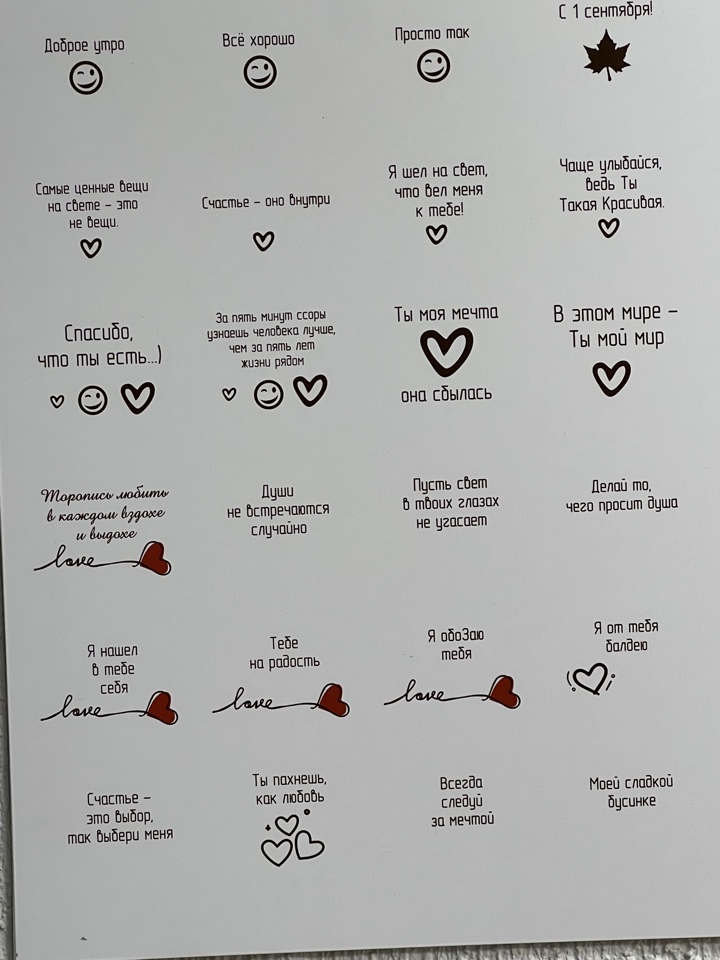 Доброе утро
Всё хорошо
Просто так
С 1 сентября!
Самые ценные вещи
на свете – это
не вещи.
Счастье – оно внутри
Я шел на свет,
что вел меня
к тебе!
Чаще улыбайся,
ведь Ты
Такая Красивая.
Спасибо,
что ты есть...)
За пять минут ссоры
узнаешь человека лучше,
чем за пять лет
жизни рядом
Ты моя мечта
она сбылась
В этом мире –
Ты мой мир
Торопись любить
в каждом вздохе
и выдохе
love
Души
не встречаются
случайно
Пусть свет
в твоих глазах
не угасает
Делай то,
чего просит душа
Я нашел
в тебе
себя
love
Тебе
на радость
love
Я обоЗаю
тебя
love
Я от тебя
балдею
Счастье –
это выбор,
так выбери меня
Ты пахнешь,
как любовь
Всегда
следуй
за мечтой
Моей сладкой
бусинке